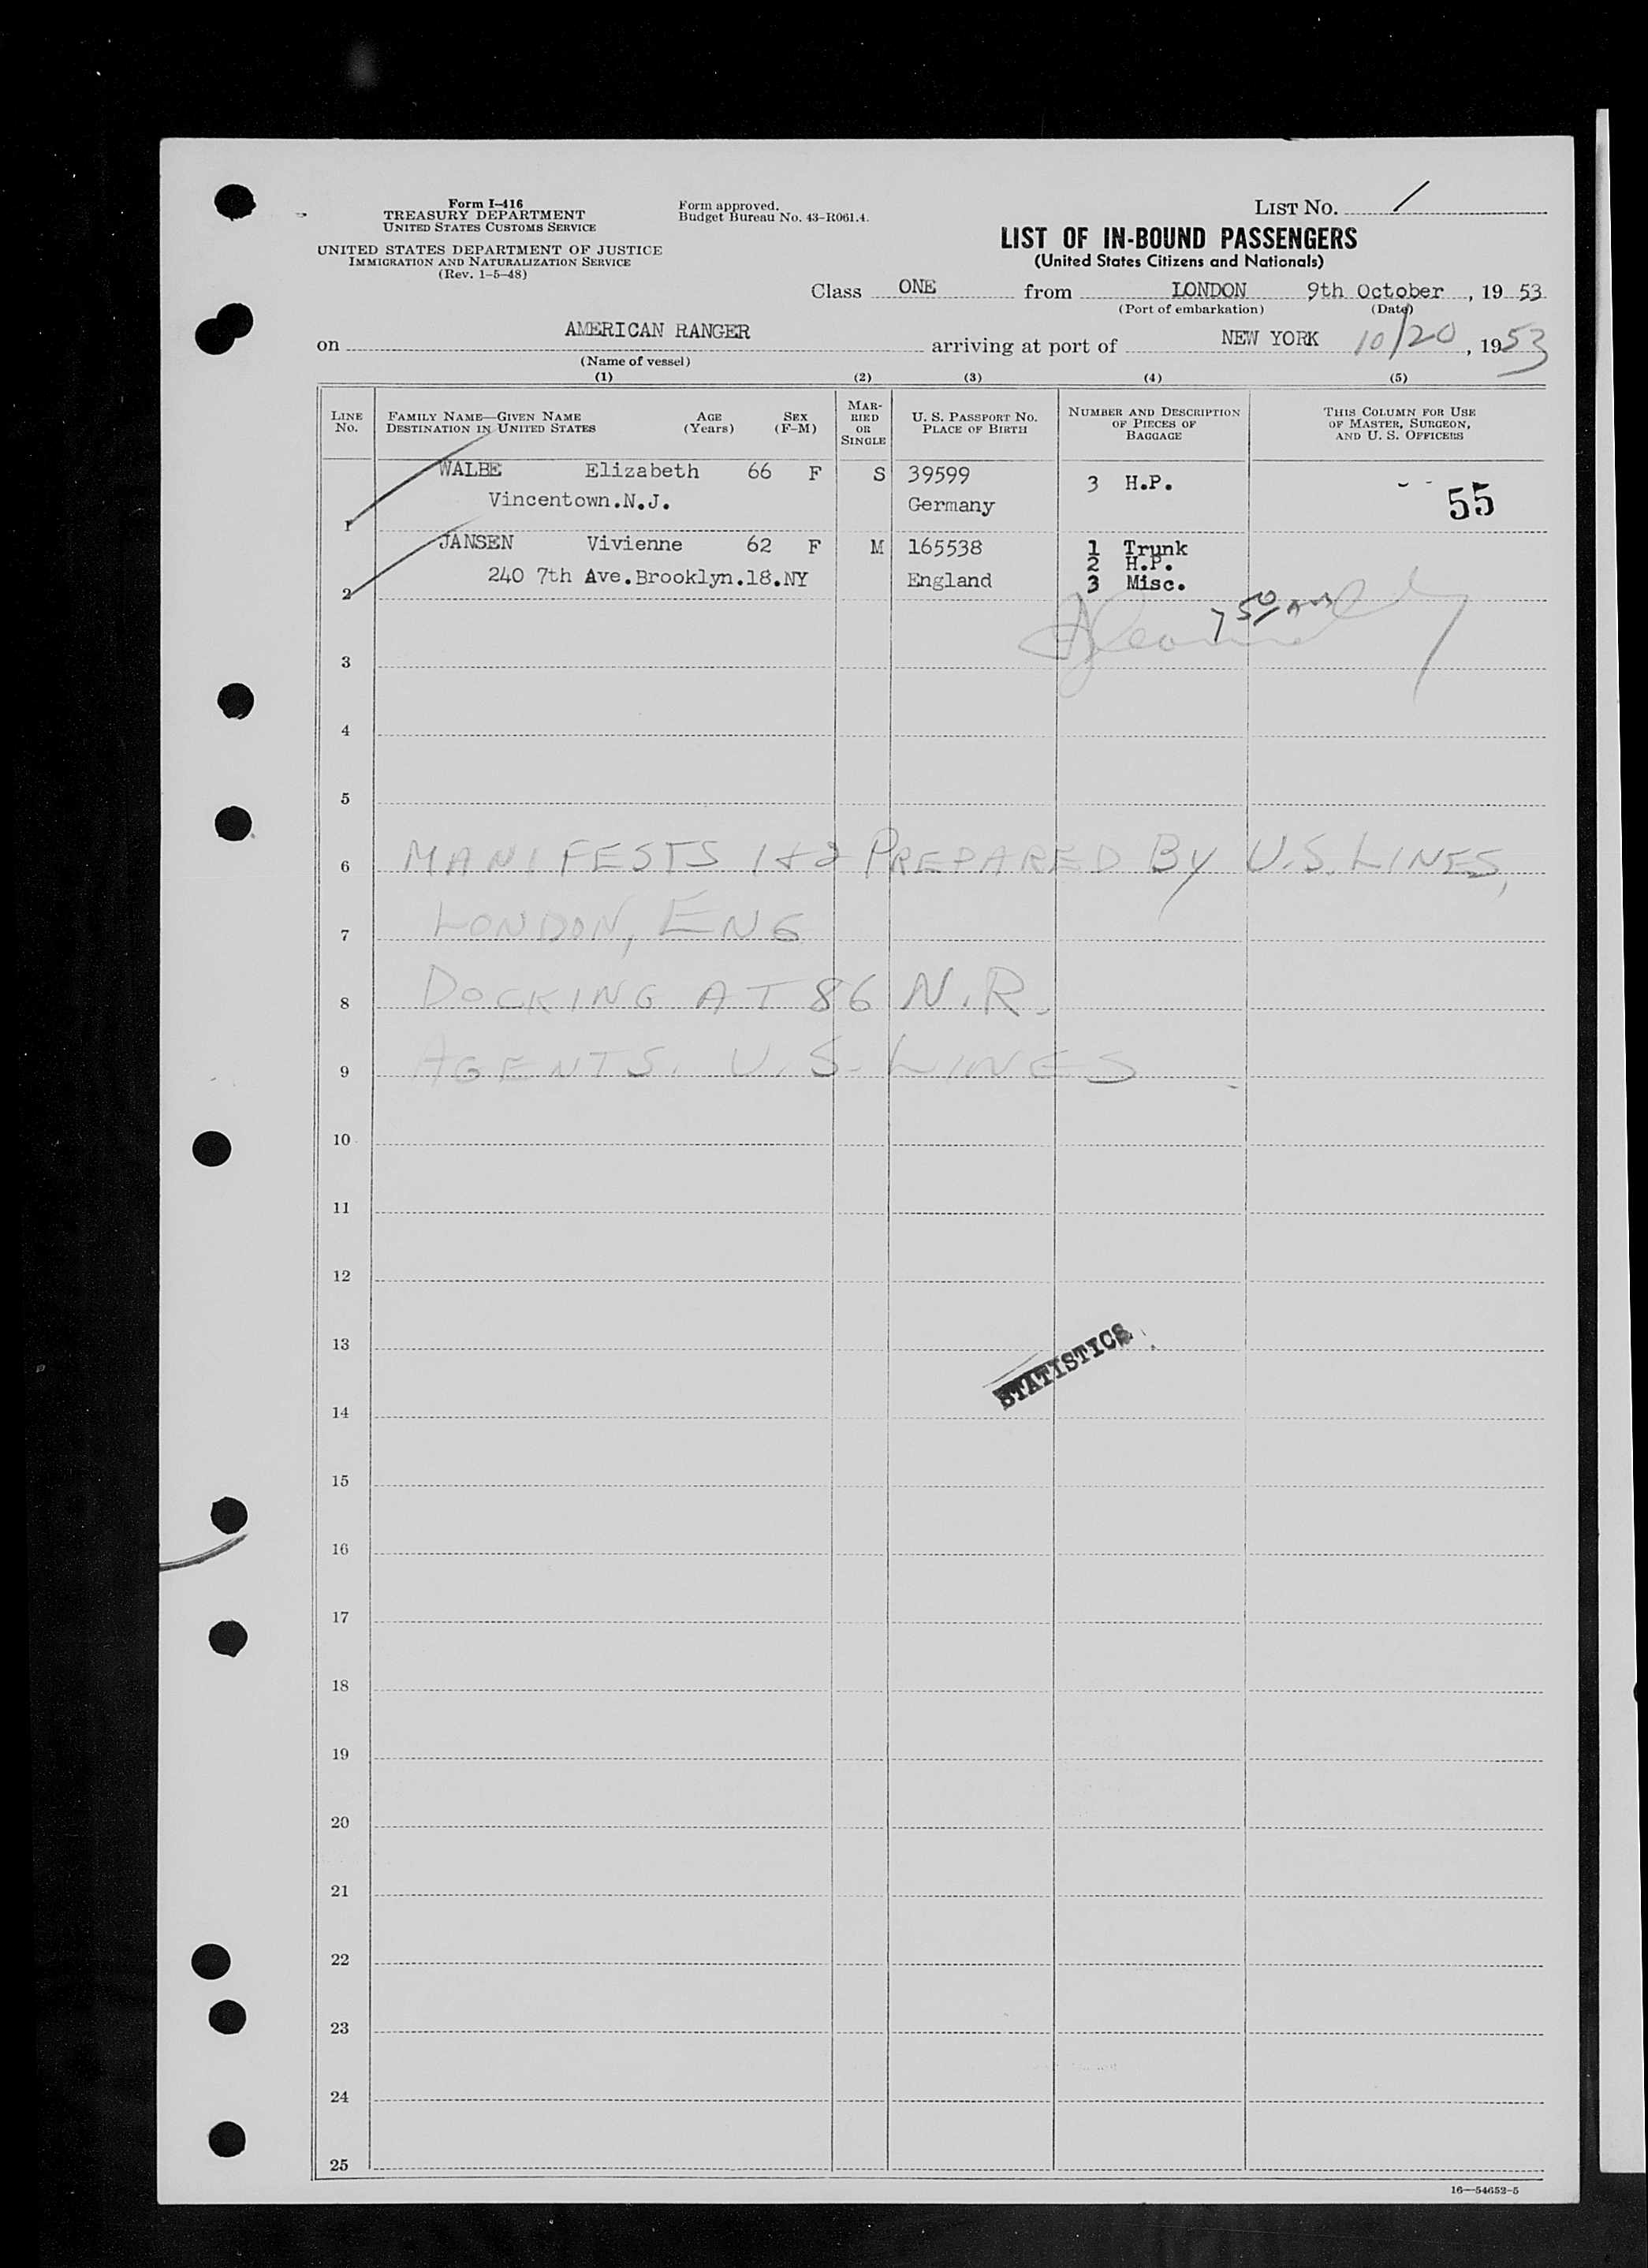 Form I-416
TREASURY DEPARTMENT
UNITED STATES CUSTOMS SERVICE
UNITED STATES DEPARTMENT OF JUSTICE
IMMIGRATION AND NATURALIZATION SERVICE
(Rev. 1-5-48)
Form approved.
Budget Bureau No. 43-R061.4.
LIST NO. 1
LIST OF IN-BOUND PASSENGERS
(United States Citizens and Nationals)
Class ONE from LONDON 9th October, 19 53
(Port of embarkation) (Date)
on AMERICAN RANGER arriving at port of NEW YORK 10/20, 1953
(Name of vessel)
(1) (2) (3) (4) (5)
LINE NO.
FAMILY NAME—GIVEN NAME AGE SEX
DESTINATION IN UNITED STATES (Years) (F-M)
MAR-
RIED
OR
SINGLE
U. S. PASSPORT NO.
PLACE OF BIRTH
NUMBER AND DESCRIPTION
OF PIECES OF
BAGGAGE
THIS COLUMN FOR USE
OF MASTER, SURGEON,
AND U. S. OFFICERS
WALBE Elizabeth 66 F S 39599 3 H.P. 55
Vincentown.N.J. Germany
1
JANSEN Vivienne 62 F M 165538 1 Trunk
2 H.P.
240 7th Ave.Brooklyn.18.NY England 3 Misc.
2
3
4
5
6 MANIFESTS 1 & 2 PREPARED BY U.S. LINES,
7 LONDON, ENG
8 DOCKING AT 86 N.R.
9 AGENTS. U.S. LINES
10
11
12
13
STATISTICS
14
15
16
17
18
19
20
21
22
23
24
25
16—54652-5